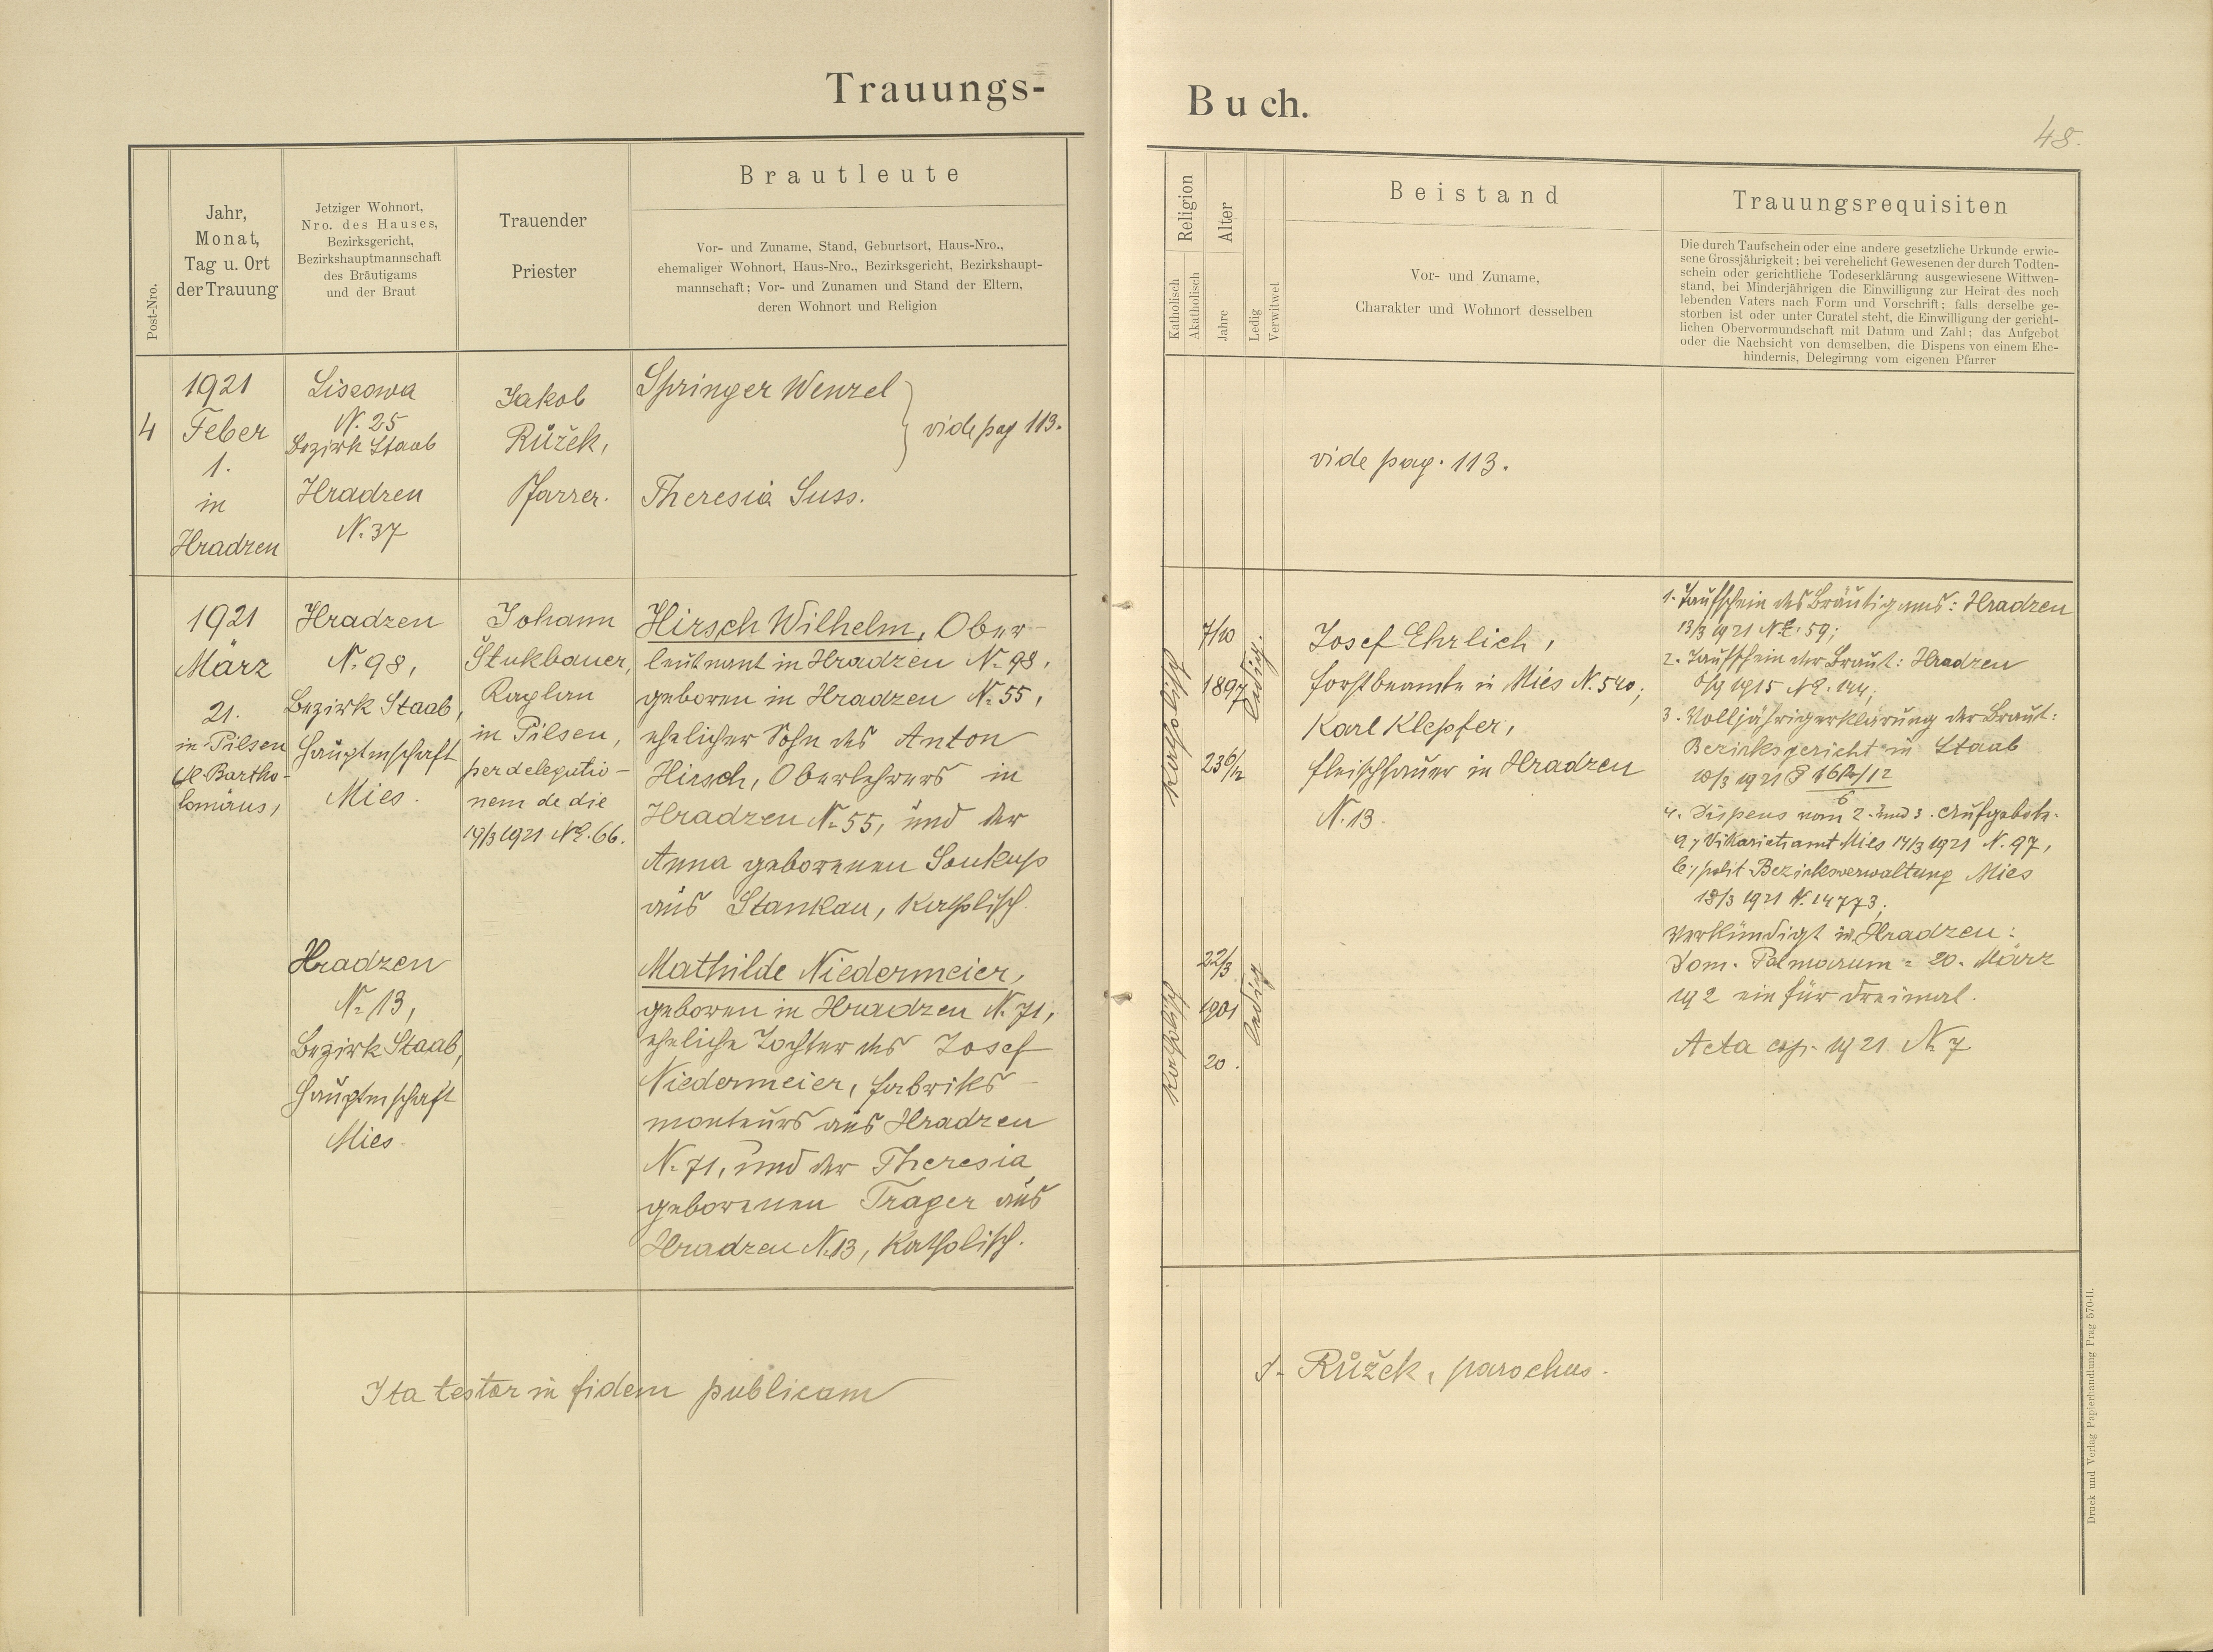 Trauungs-
Buch.
48.
Post-Nro.
Jahr,
Monat,
Tag u. Ort
der Trauung
Jetziger Wohnort,
Nro. des Hauses,
Bezirksgericht,
Bezirkshauptmannschaft
des Bräutigams
und der Braut
Trauender
Priester
Brautleute
Vor- und Zuname, Stand, Geburtsort, Haus-Nro.,
ehemaliger Wohnort, Haus-Nro., Bezirksgericht, Bezirkshaupt-
mannschaft; Vor- und Zunamen und Stand der Eltern,
deren Wohnort und Religion
Religion
Katholisch
Akatholisch
Alter
Jahre
Ledig
Verwitwet
Beistand
Vor- und Zuname,
Charakter und Wohnort desselben
Trauungsrequisiten
Die durch Taufschein oder eine andere gesetzliche Urkunde erwie-
sene Grossjährigkeit; bei verehelicht Gewesenen der durch Todten-
schein oder gerichtliche Todeserklärung ausgewiesene Wittwen-
stand, bei Minderjährigen die Einwilligung zur Heirat des noch
lebenden Vaters nach Form und Vorschrift; falls derselbe ge-
storben ist oder unter Curatel steht, die Einwilligung der gericht-
lichen Obervormundschaft mit Datum und Zahl; das Aufgebot
oder die Nachsicht von demselben, die Dispens von einem Ehe-
hindernis, Delegirung vom eigenen Pfarrer
4
1921
Feber
1.
in
Hradzen
Lissowa
N. 25
Bezirk Staab
Hradzen
N. 37
Jakob
Růžek,
Pfarrer.
Springer Wenzel
vide pag 113.
Theresia Suss.
vide pag. 113.
1921
März
21.
in Pilsen
St. Bartho-
lomäus,
Hradzen
N. 98,
Bezirk Staab,
Hauptmschaft
Mies.
Johann
Stukbauer,
Kaplan
in Pilsen,
per delegatio-
nem de die
14/3 1921 NE. 66.
Hirsch Wilhelm, Ober-
leutnant in Hradzen N. 98,
geboren in Hradzen N. 55,
ehelicher Sohn des Anton
Hirsch, Oberlehrers in
Hradzen N. 55, und der
Anna geborenen Soukup
aus Stankau, katholisch.
Hradzen
N. 13,
Bezirk Staab,
Hauptmschaft
Mies.
Mathilde Niedermeier,
geboren in Hradzen N. 71,
eheliche Tochter des Josef
Niedermeier, Fabriks-
monteurs aus Hradzen
N. 71, und der Theresia
geborenen Trager aus
Hradzen N. 13, katholisch.
Katholisch
7/10
1897
23 6/12
ledig.
Katholisch
22/3
1901
20.
ledig
Josef Ehrlich,
Forstbeamte in Mies N. 540;
Karl Klepfer,
Fleischhauer in Hradzen
N. 13.
1. Taufschein des Bräutigams: Hradzen
13/3 1921 NE. 59;
2. Taufschein der Braut: Hradzen
6/9 1915 NE. 144;
3. Volljährigerklärung der Braut:
Bezirksgericht in Staab
10/3 1921
4. Dispens vom 2. und 3. Aufgebote.
a, Vikariatsamt Mies 14/3 1921 N. 97,
b, polit Bezirksverwaltung Mies
18/3 1921 N. 14773;
Verkündigt in Hradzen:
Dom. Palmarum = 20. März
192 ein für dreimal.
Acta 1921 N. 7
Ita testor in fidem publicam
J. Růžek, parochus.
Druck und Verlag Papierhandlung Prag 570-II.